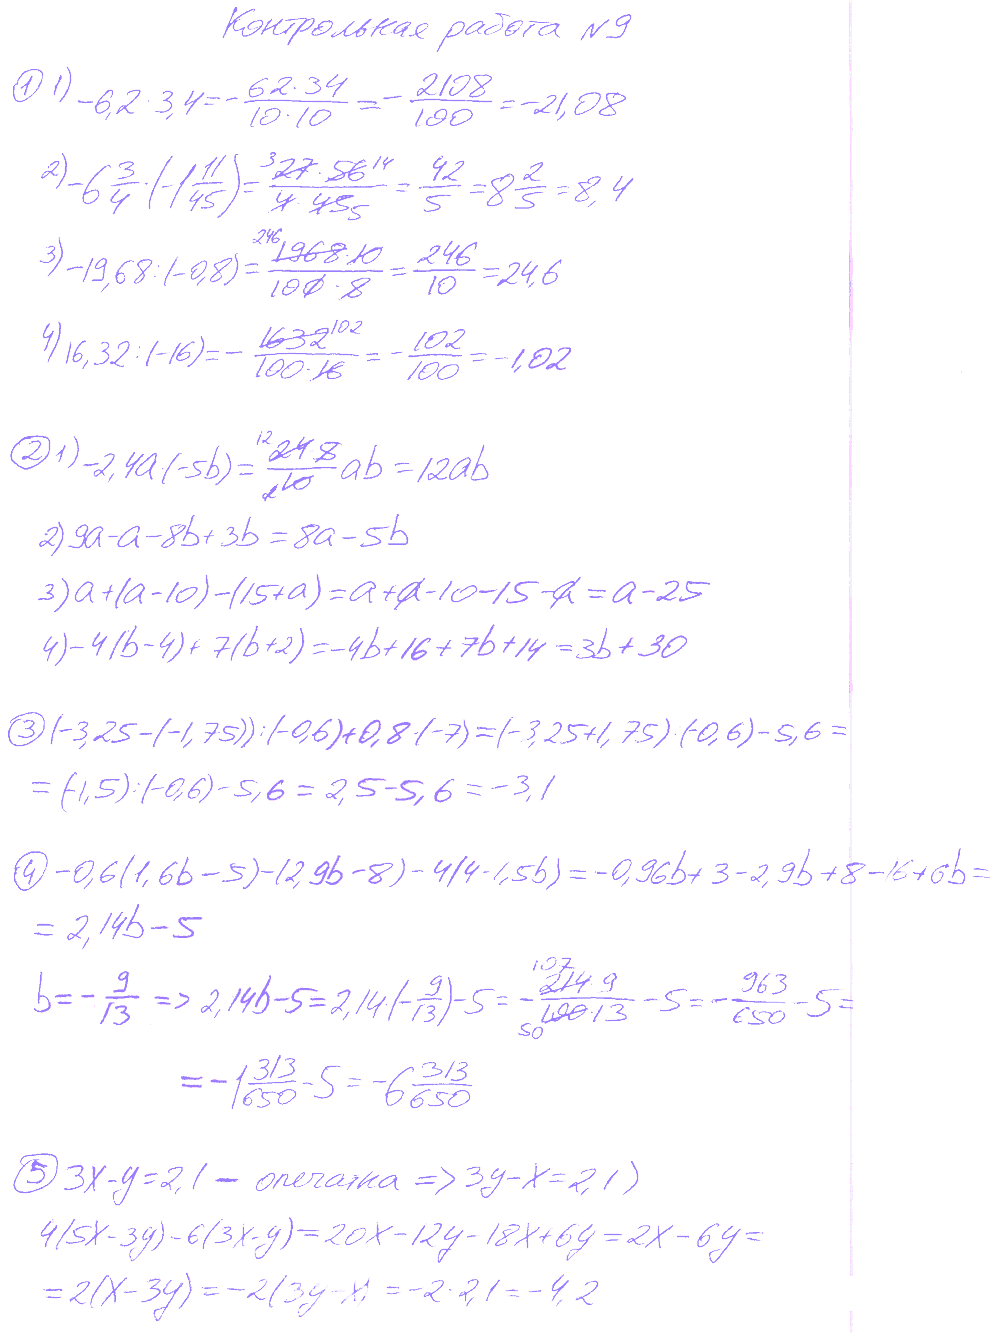 Контрольная работа №9
① 1) -6,2·3,4=-62·34/10·10=-2108/100=-21,08
2) -6 3/4·(-1 11/45)=3 27·56 14/4·45 5=42/5=8 2/5=8,4
3) -19,68:(-0,8)=246 1968·10/100·8=246/10=24,6
4) 16,32:(-16)=-1632 102/100·16=-102/100=-1,02
② 1) -2,4a·(-5b)=12 24·8/2 10 ab=12ab
2) 9a-a-8b+3b=8a-5b
3) a+(a-10)-(15+a)=a+a-10-15-a=a-25
4) -4(b-4)+7(b+2)=-4b+16+7b+14=3b+30
③ (-3,25-(-1,75)):(-0,6)+0,8·(-7)=(-3,25+1,75):(-0,6)-5,6=
=(-1,5):(-0,6)-5,6=2,5-5,6=-3,1
④ -0,6(1,6b-5)-(2,9b-8)-4(4-1,5b)=-0,96b+3-2,9b+8-16+6b=
=2,14b-5
b=-9/13 => 2,14b-5=2,14·(-9/13)-5=-107 214·9/50 100·13-5=-963/650-5=
=-1 313/650-5=-6 313/650
⑤ 3x-y=2,1 - опечатка => 3y-x=2,1)
4(5x-3y)-6(3x-y)=20x-12y-18x+6y=2x-6y=
=2(x-3y)=-2(3y-x)=-2·2,1=-4,2